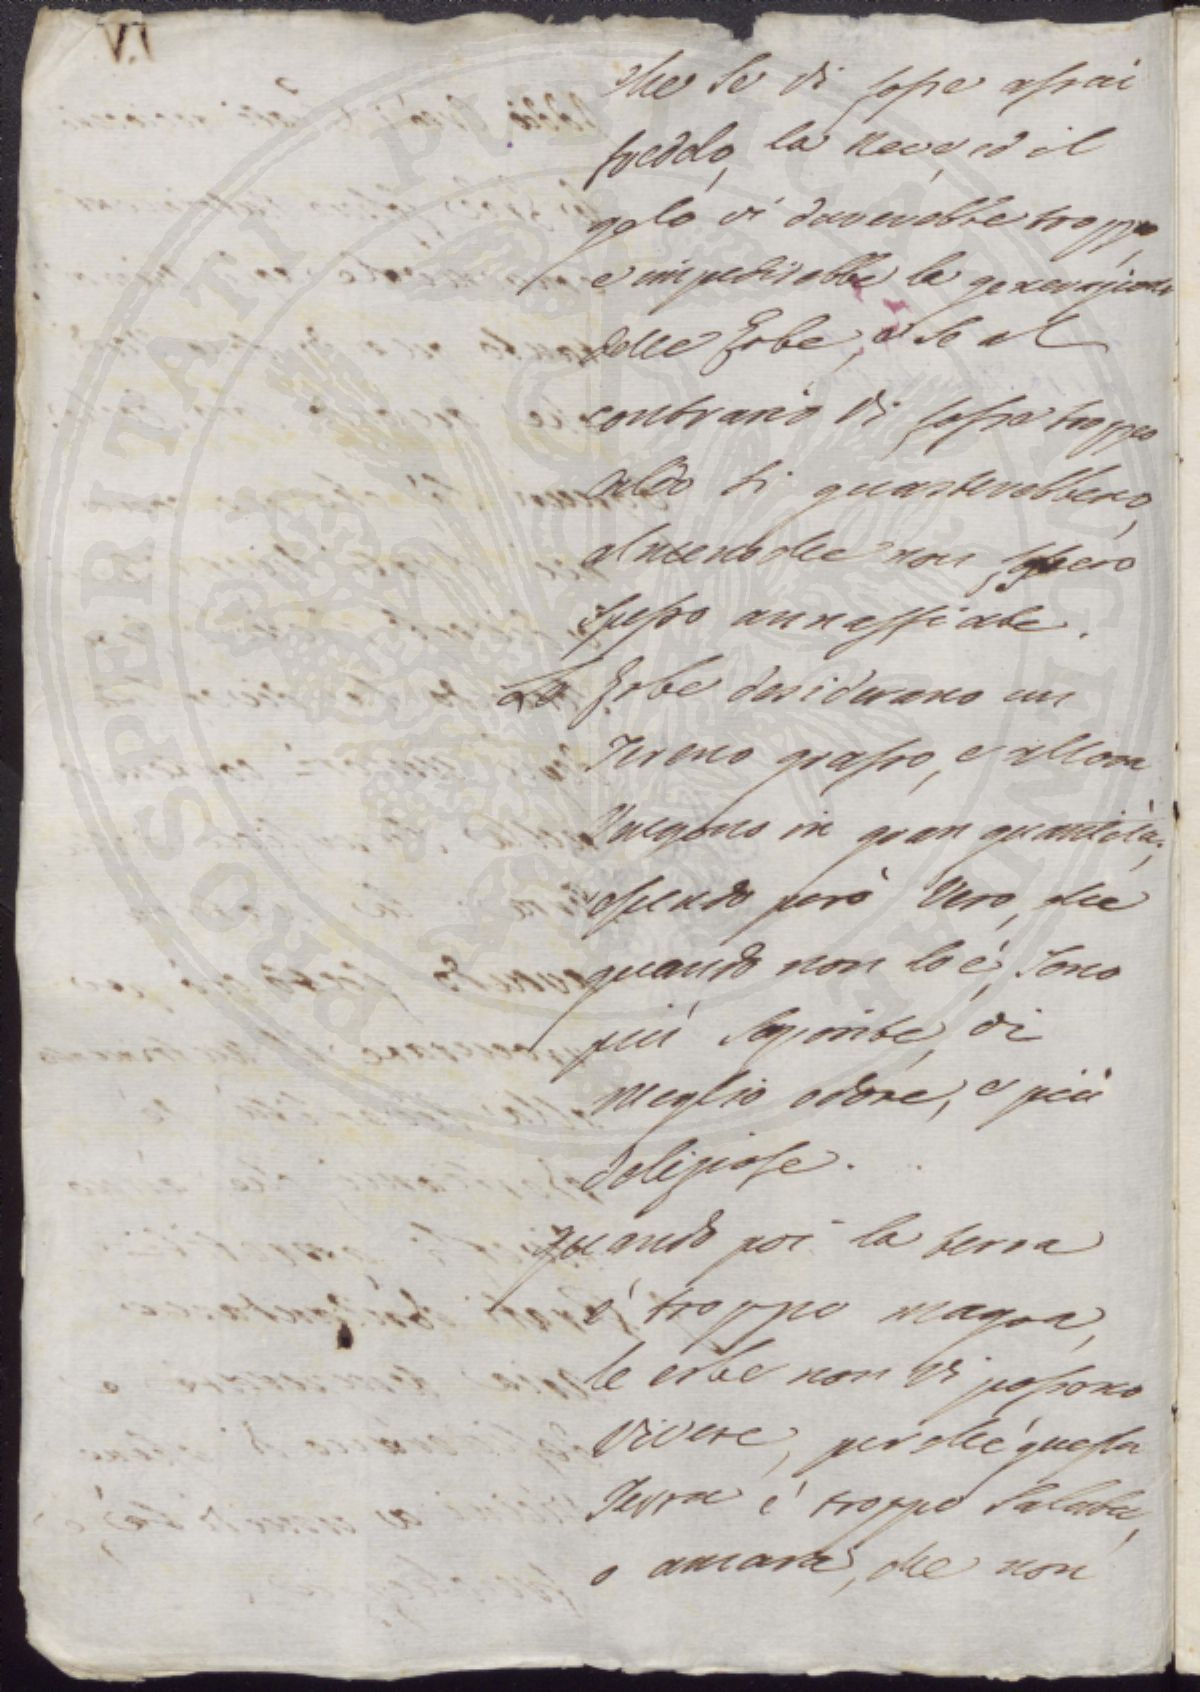 che se vi fosse assai
freddo, la neve, ed il
gelo vi durerebbe troppo,
e impedirebbe la generazione
delle Erbe, e se al
contrario vi fosse troppo
caldo si guasterebbero,
almenoche non fossero
spesso annaffiate.
Le Erbe desiderano un
Tereno grasso, e allora
Vengono in gran quantità;
essendo però Vero, che
quando non lo è, sono
più saporite, di
meglio odore, e più
deliziose.
Quando poi la terra
è troppo magra,
le erbe non vi possono
vivere, perche questa
Terra è troppo salata,
o amara, che non
PROSPERITATI PUBLICAE AUGENDAE